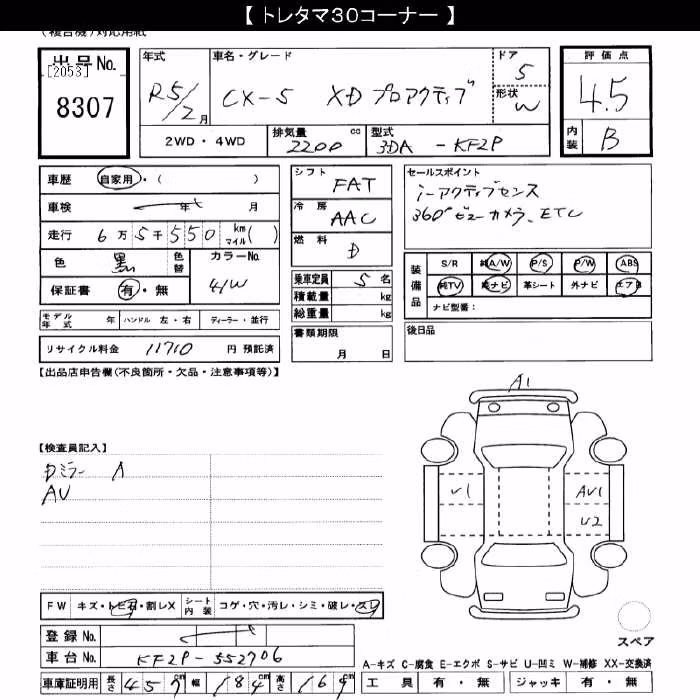 【 トレタマ30コーナー 】
(複合機)対応用紙
出品No.
[2053]
8307
年式 R5/2月
車名・グレード CX-5 XD プロアクティブ
ドア 5
形状 W
2WD・4WD
排気量 2200 cc
型式 3DA - KF2P
評価点 4.5
内装 B
車歴 自家用・( )
車検 年 月
走行 6万5千550 km マイル( )
色 黒 色替
カラーNo. 41W
保証書 有・無
モデル年式 年 ハンドル 左・右 ディーラー・並行
リサイクル料金 11710 円 預託済
シフト FAT
冷房 AAC
燃料 D
乗車定員 5 名
積載量 kg
総重量 kg
書類期限
月 日
セールスポイント
i-アクティブセンス
360°ビューカメラ、ETC
装備品
S/R 純A/W P/S P/W ABS
純TV 純ナビ 革シート 外ナビ エアB
ナビ型番:
後日品
【出品店申告欄(不良箇所・欠品・注意事項等)】
【検査員記入】
ミラー A
AU
A1
U1
AU1
U2
スペア
FW キズ・トビ石・割レX
シート内装 コゲ・穴・汚レ・シミ・破レ・スレ
登録No.
車台No. KF2P-552706
車庫証明用 長さ 457cm 幅 184cm 高さ 169
A-キズ C-腐食 E-エクボ S-サビ U-凹ミ W-補修 XX-交換済
工具 有・無 ジャッキ 有・無